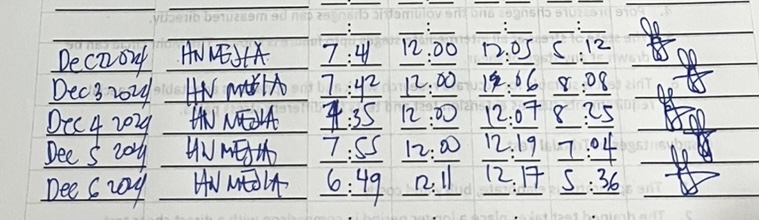 Dec 2 2024 HN MEDIA 7:41 12:00 12:05 5:12
Dec 3 2024 HN MEDIA 7:42 12:00 12:06 8:08
Dec 4 2024 HN MEDIA 7:35 12:00 12:07 8:25
Dec 5 2024 HN MEDIA 7:55 12:00 12:19 7:04
Dec 6 2024 HN MEDIA 6:49 12:11 12:17 5:36